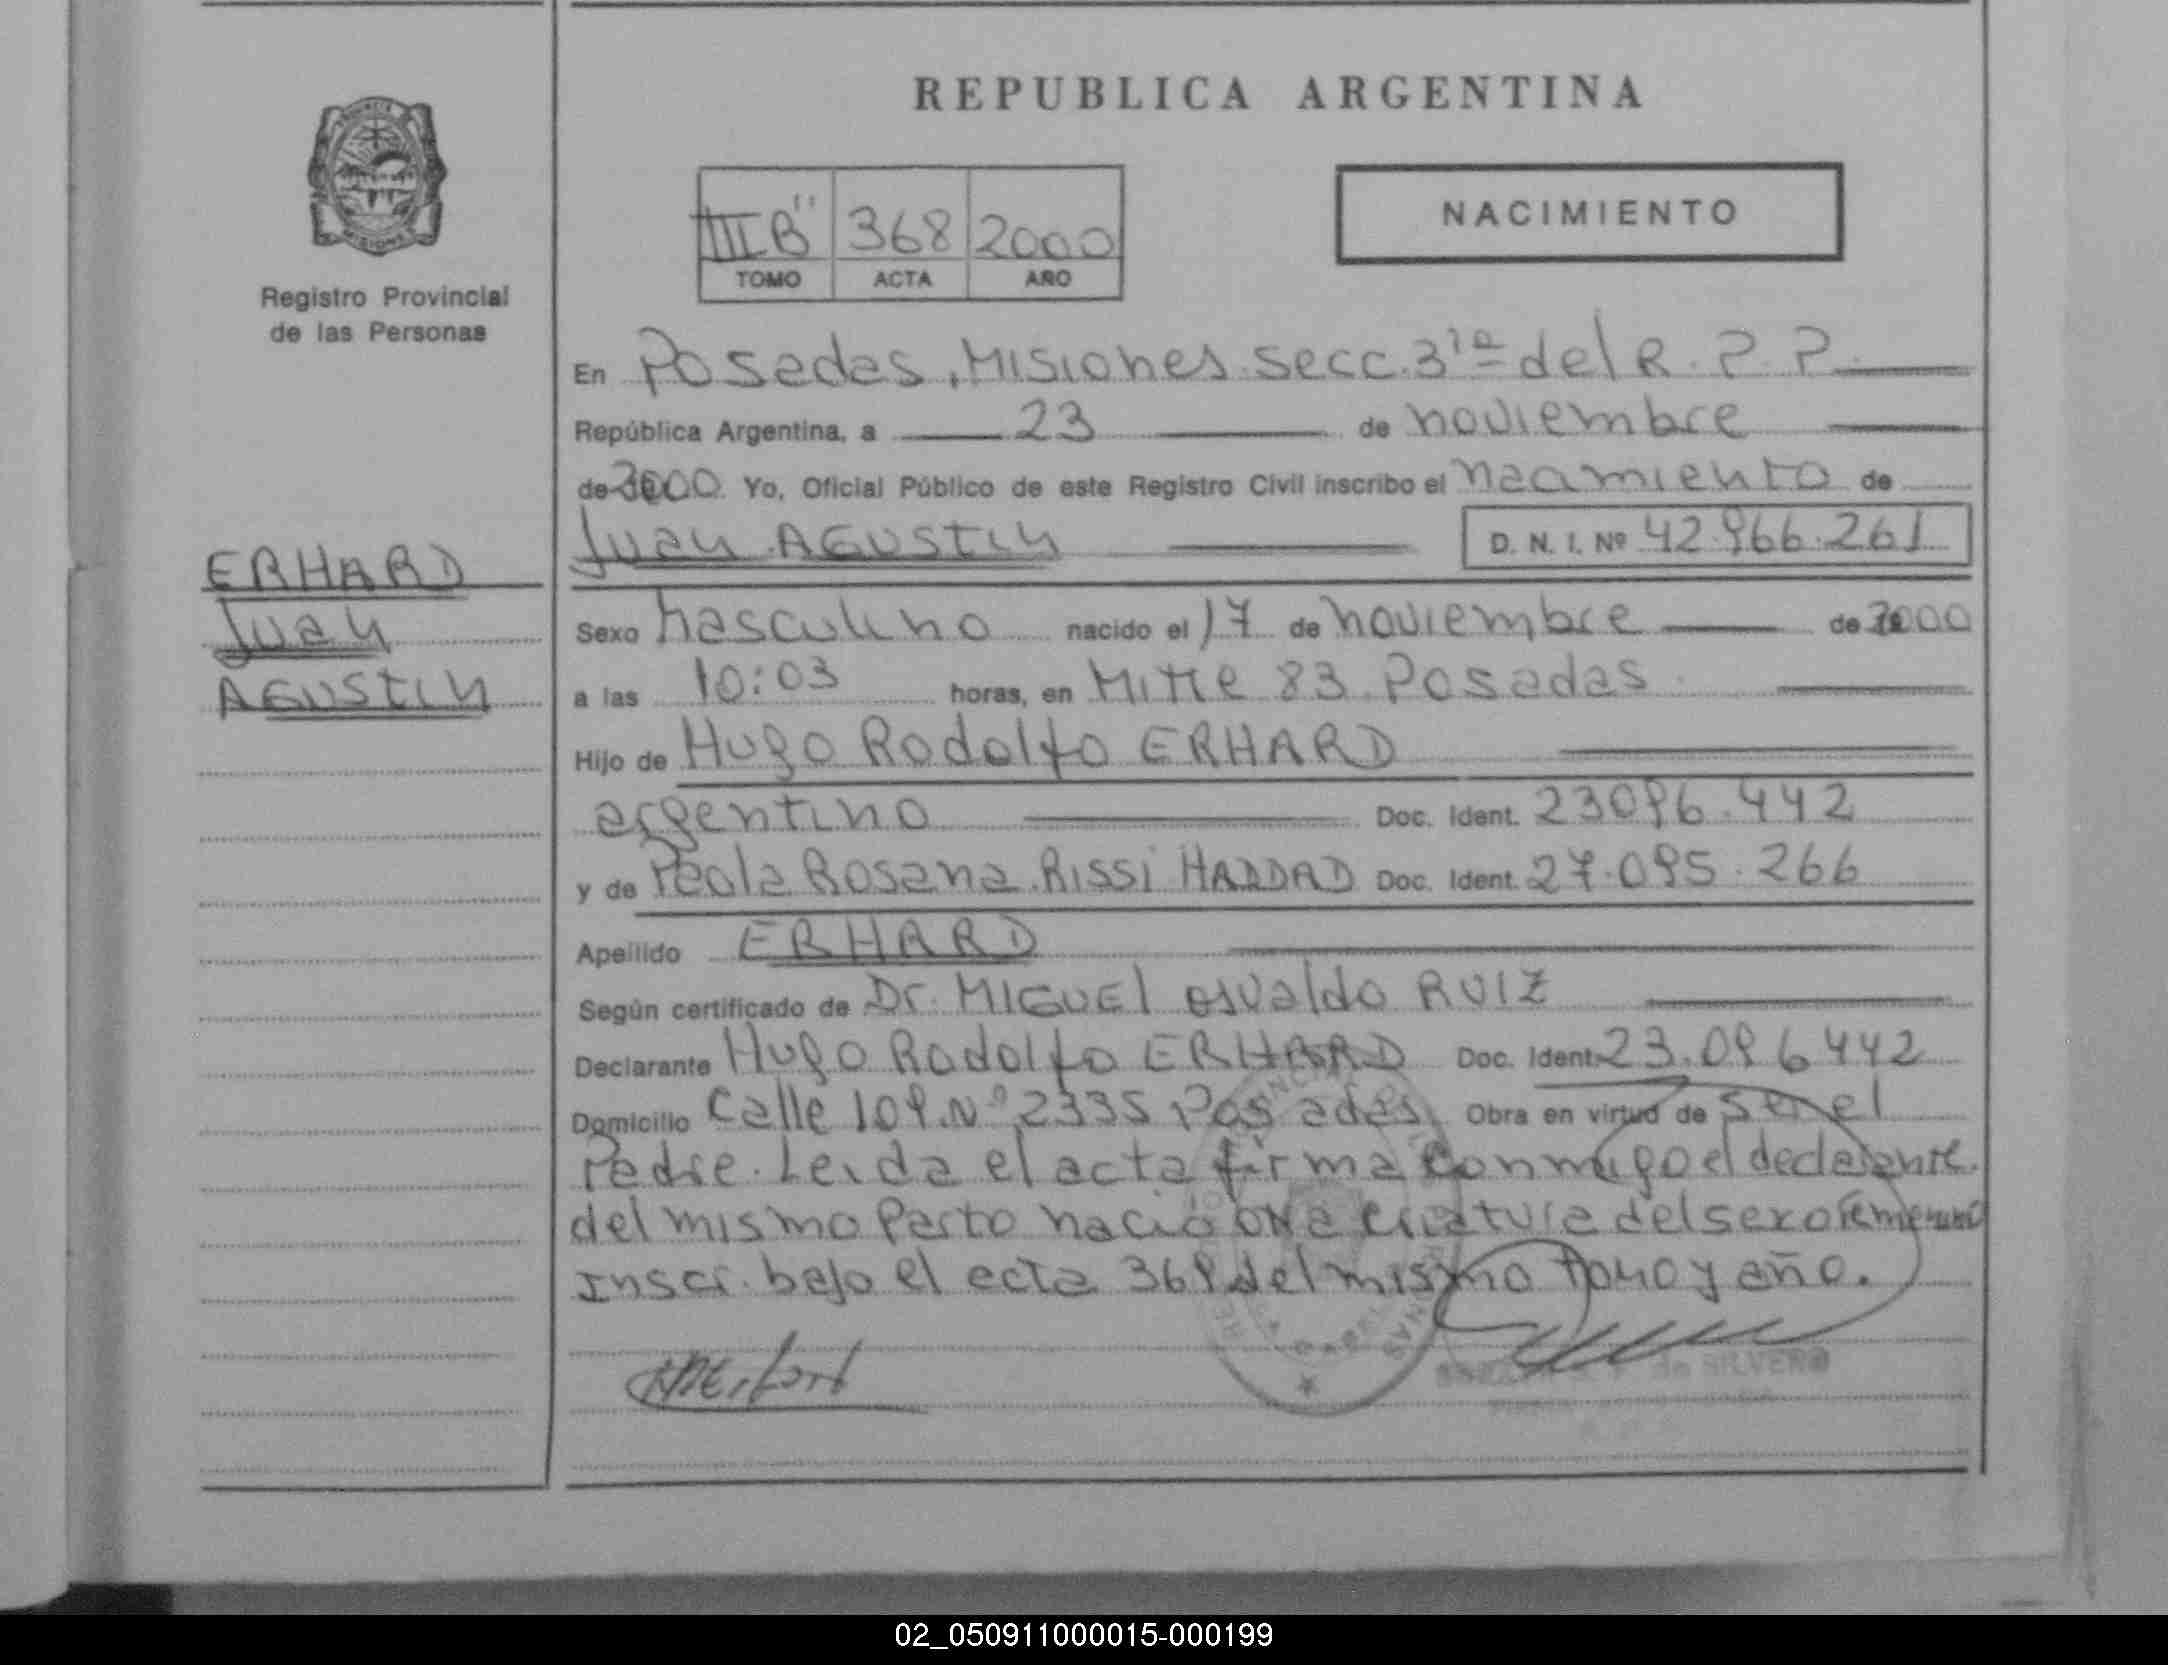 REPUBLICA ARGENTINA
PROVINCIA
MISIONES
Registro Provincial
de las Personas
III B" 368 2000
TOMO ACTA AÑO
NACIMIENTO
En Posadas, Misiones. Secc. 3ra del R.P.P.
República Argentina, a 23 de noviembre
de 2000. Yo, Oficial Público de este Registro Civil inscribo el nacimiento de
Juan AGUSTIN D. N. I. Nº 42.966.261
ERHARD
Juan
AGUSTIN
Sexo Masculino nacido el 17 de noviembre de 2000
a las 10:03 horas, en Mitre 83 Posadas.
Hijo de Hugo Rodolfo ERHARD
argentino Doc. Ident. 23096.442
y de Paola Rosana Rissi HADDAD Doc. Ident. 27.095.266
Apellido ERHARD
Según certificado de Dr. MIGUEL Osvaldo RUIZ
Declarante Hugo Rodolfo ERHARD Doc. Ident. 23.096442
Domicilio Calle 109.Nº 2335 Posadas Obra en virtud de ser el
Padre. Leida el acta firma conmigo el declarante.
del mismo Parto nació una criatura del sexo femenino
Inscr. bajo el acta 369 del mismo tomo y año.
de SILVERO
02_050911000015-000199